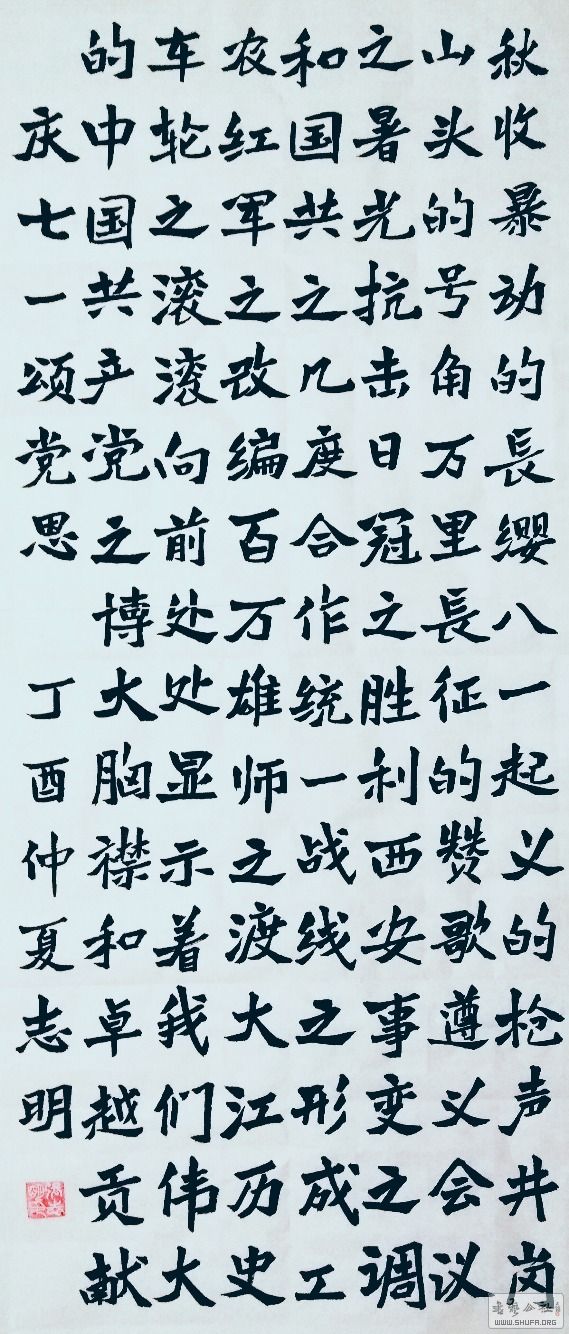 秋收暴动的長缨八一起义的枪声井岗
山头的号角万里長征的赞歌遵义会议
之暑光抗击日冠之胜利西安事变之调
和国共之几度合作统一战线之形成工
农红军之改编百万雄师之渡大江历史
车轮之滚滚向前处处显示着我们伟大
的中国共产党之博大胸襟和卓越贡献
庆七一颂党思 丁酉仲夏志明
WWW.SHUFA.ORG